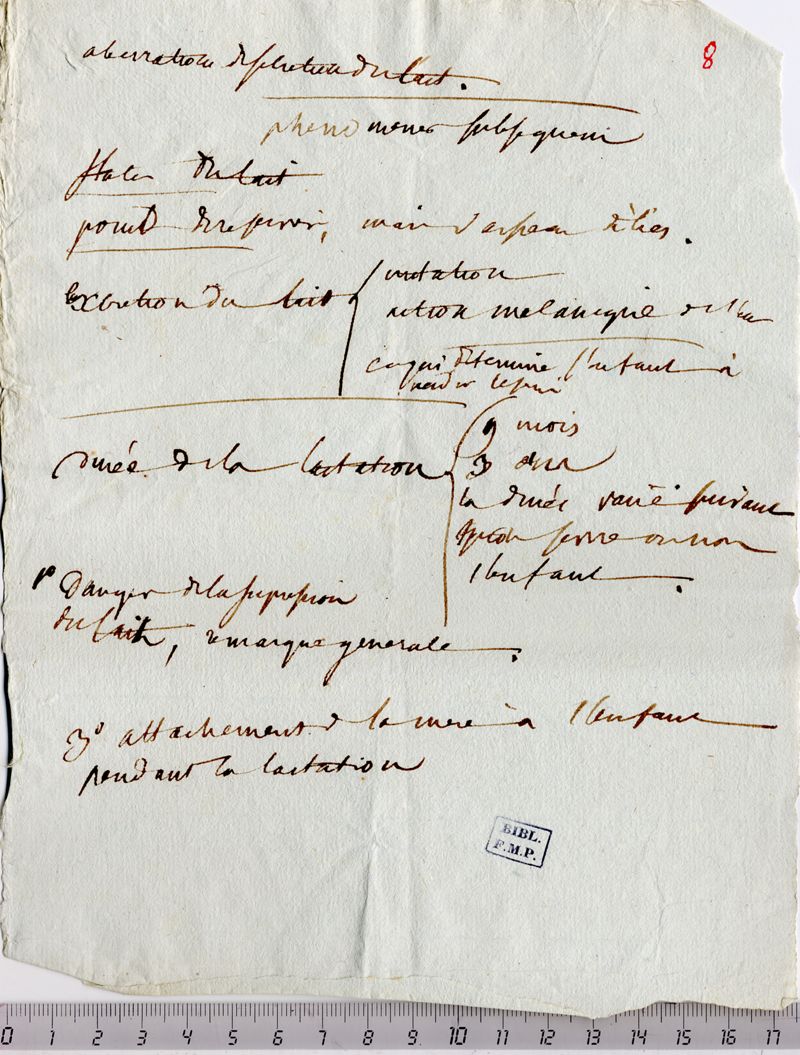 8
aberrations de secretion du lait.
phenomenes subsequens
Stases du lait
point de reservoir,
excretion du lait
succion
action mecanique de
ce qui determine l'enfant à
durée de la lactation
9 mois
3 ans
la durée varie suivant
qu'on sevre ou non
l'enfant.
1º Danger de la supression
du lait, remarque generale.
3º attachement de la mere à l'enfant
pendant la lactation
BIBL.
F.M.P.
0 1 2 3 4 5 6 7 8 9 10 11 12 13 14 15 16 17